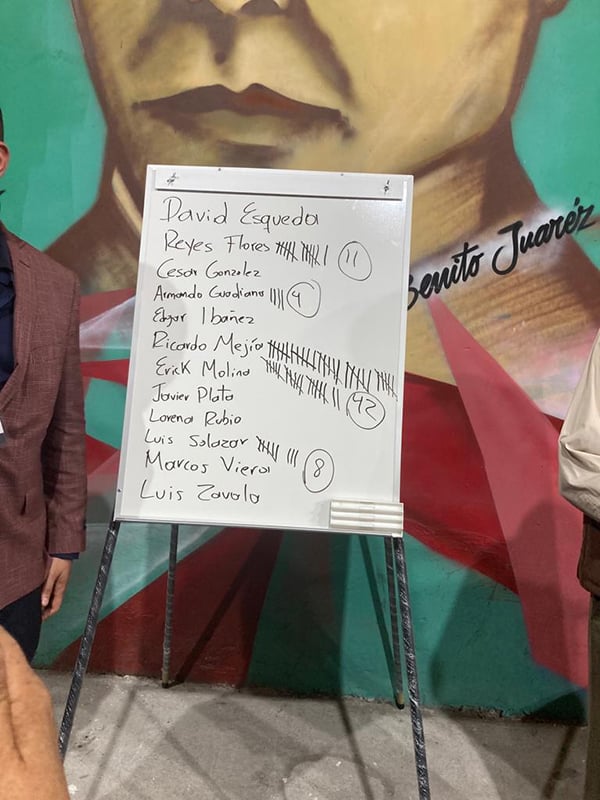 David Esqueda
Reyes Flores 11
Cesar Gonzalez
Armando Guadiana 4
Edgar Ibañez
Ricardo Mejía
Erick Molina
Javier Plata 42
Lorena Rubio
Luis Salazar
Marcos Viera 8
Luis Zavala
Benito Juaréz